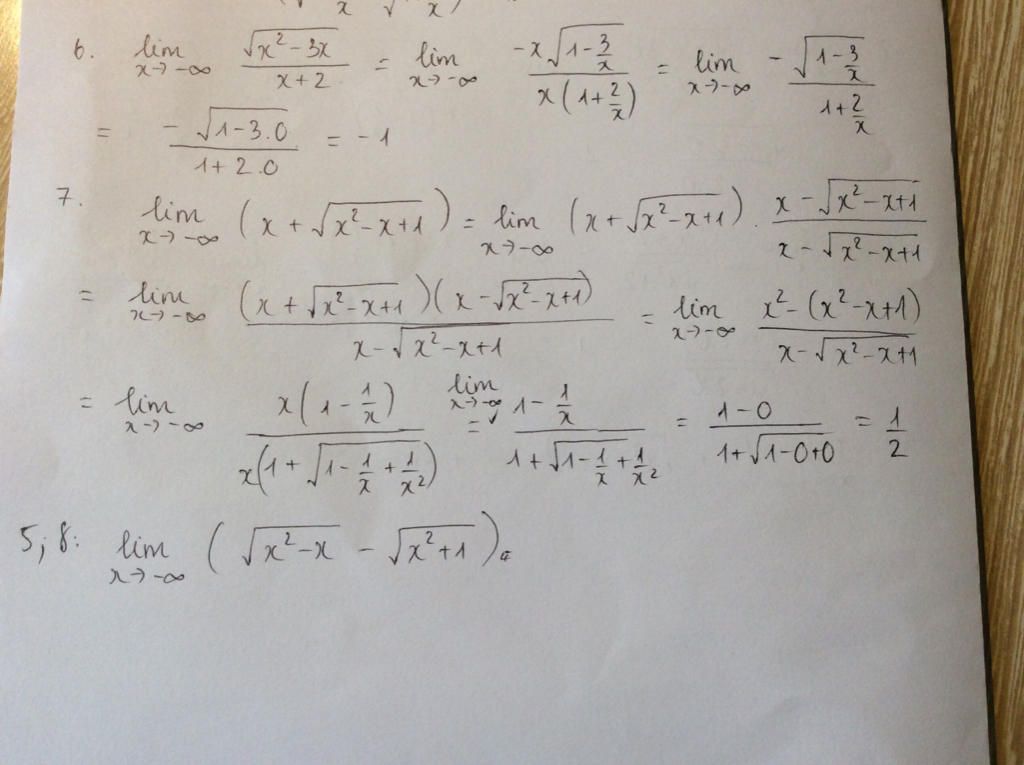 6. lim x→-∞ √(x² - 3x) / (x + 2) = lim x→-∞ -x√(1 - 3/x) / x(1 + 2/x) = lim x→-∞ -√(1 - 3/x) / (1 + 2/x)
= -√(1 - 3.0) / (1 + 2.0) = -1
7. lim x→-∞ (x + √(x² - x + 1)) = lim x→-∞ (x + √(x² - x + 1)) . (x - √(x² - x + 1)) / (x - √(x² - x + 1))
= lim x→-∞ (x + √(x² - x + 1))(x - √(x² - x + 1)) / (x - √(x² - x + 1)) = lim x→-∞ (x² - (x² - x + 1)) / (x - √(x² - x + 1))
= lim x→-∞ x(1 - 1/x) / x(1 + √(1 - 1/x + 1/x²)) = lim x→-∞ (1 - 1/x) / (1 + √(1 - 1/x + 1/x²)) = (1 - 0) / (1 + √(1 - 0 + 0)) = 1/2
5, 8: lim x→-∞ (√(x² - x) - √(x² + 1)).